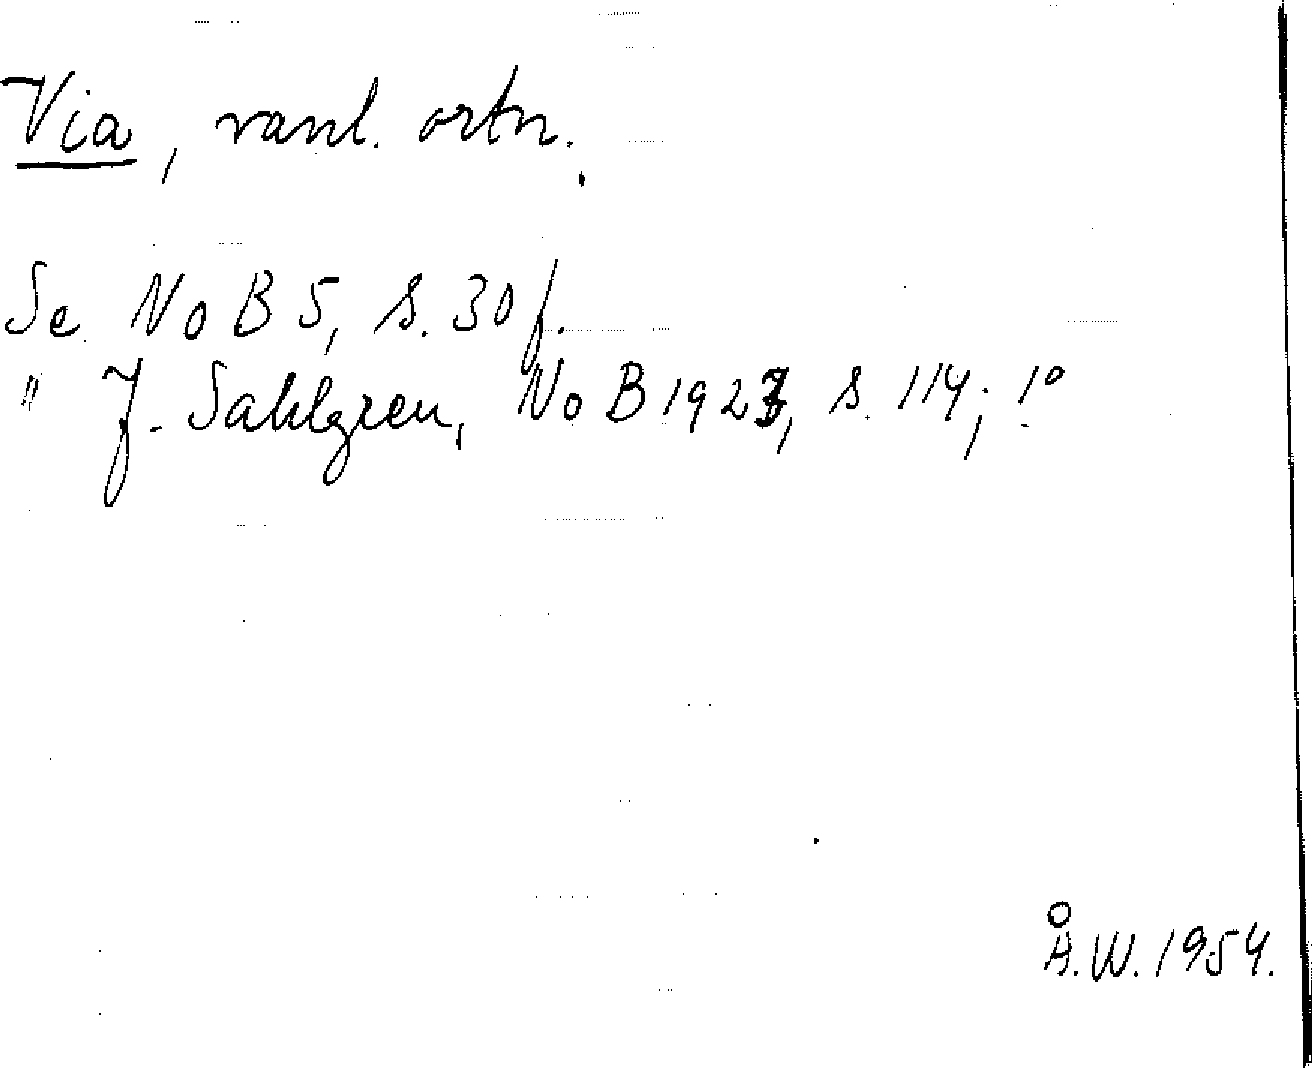 Via, vanl. ortn.
Se NoB 5, s. 30 f.
" J. Sahlgren, NoB 1923, s. 114; 1°
Å.W. 1954.